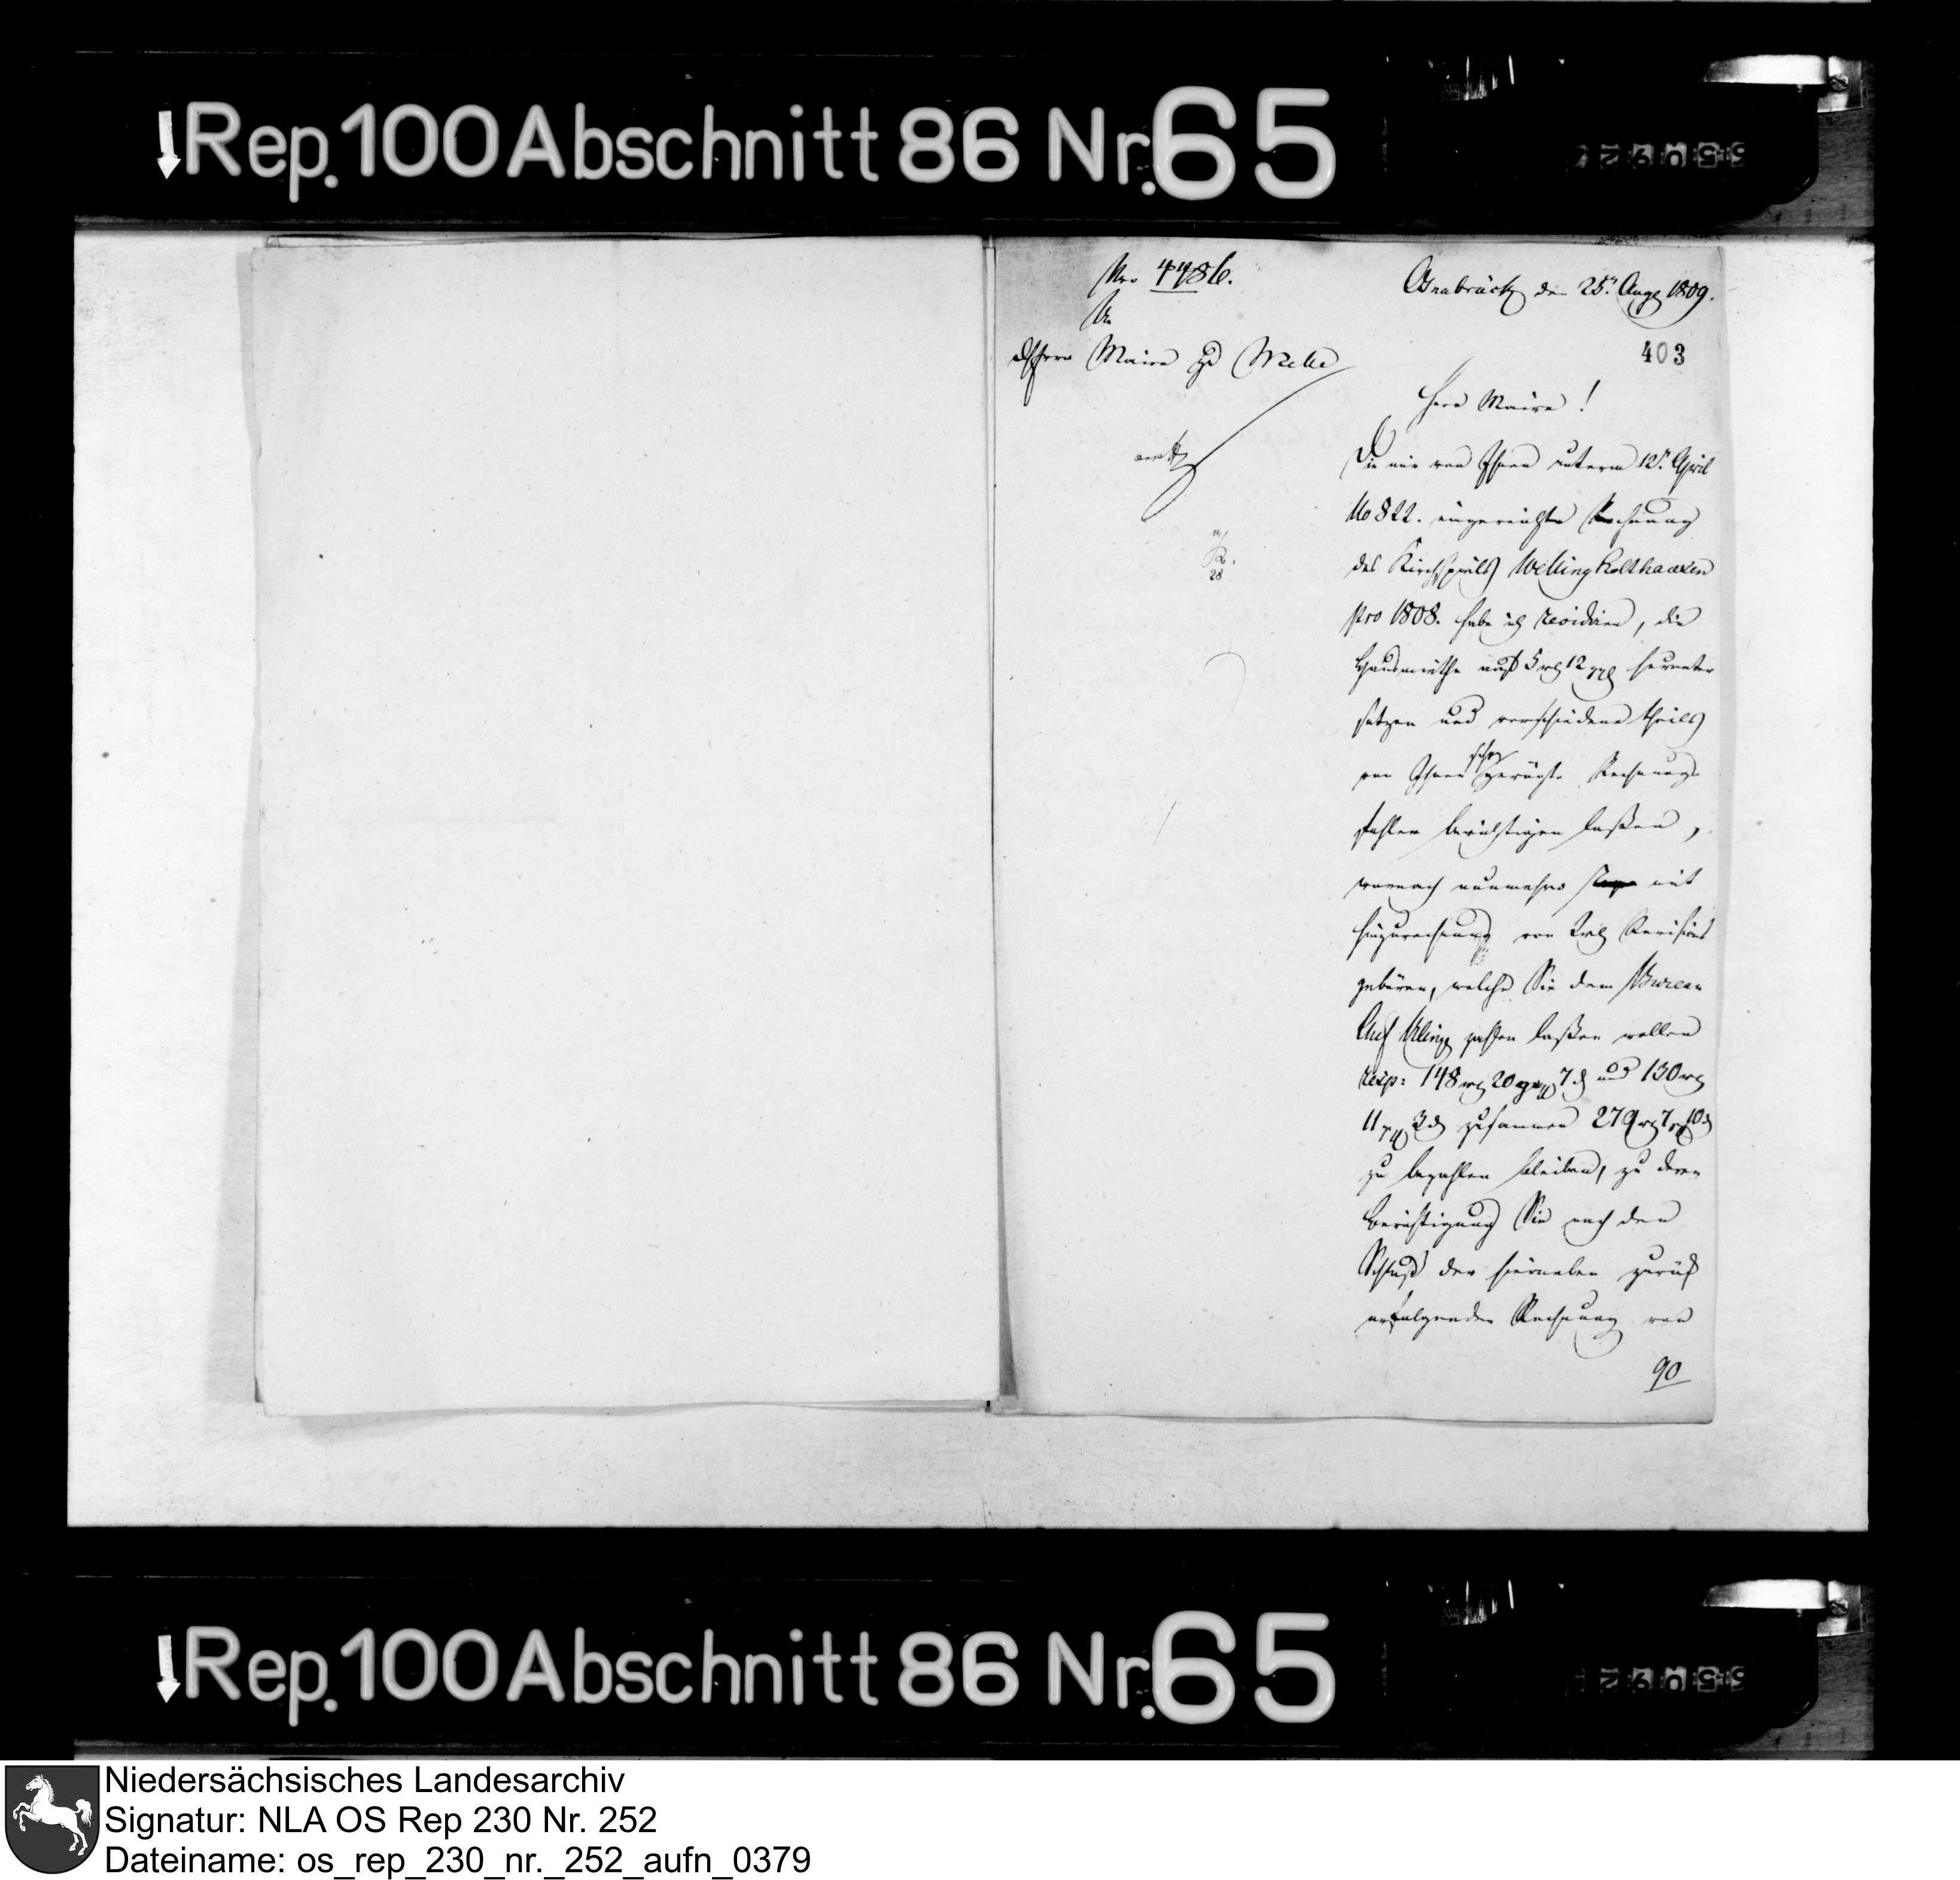 Rep.100 Abschnitt 86 Nr. 65
Nro 4486.
An
den Herrn Maire zu Melle
Osnabrück den 25t. Aug 1809.
403
Herr Maire!
Die mir von Ihnen unterm 12t. April
No 822. eingereichte Rechnung
des Kirchspiels Wellingholthausen
pro 1808. habe ich revidiren, die
Hausmiethe auf 5 rl 12 ggl herunter
setzen und verschiedene theils
von Ihnen schon gerügte Rechnungs
fehler berichtigen laßen,
wonach nunmehro mit
Hinzurechnung von 2 rl Revisions
gebüren, welche Sie dem Bureau
Chef zahlen laßen wollen
resp: 148 rl 20 ggl 7 d und 130 rl
11 ggl 3 d zusammen 279 rl 7 ggl 10 d
zu bezahlen bleiben, zu deren
Berichtigung Sie nach dem
Schluß der hierneben zurück
erfolgenden Rechnung von
90
28
Rep.100 Abschnitt 86 Nr. 65
Niedersächsisches Landesarchiv
Signatur: NLA OS Rep 230 Nr. 252
Dateiname: os_rep_230_nr._252_aufn_0379